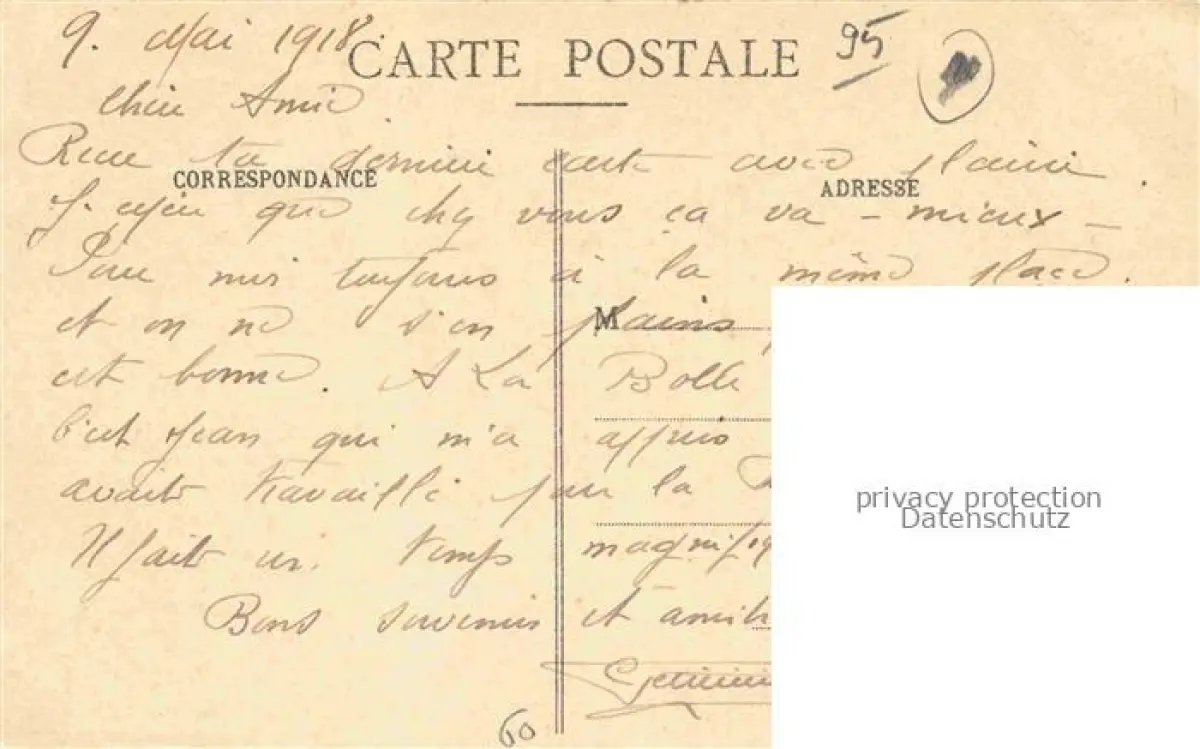 9. Mai 1918.
CARTE POSTALE
95
Chère Amie
Reçu ta dernière carte avec plaisir.
CORRESPONDANCE
ADRESSE
J'espère que chez vous ça va - mieux -
Pour moi toujours à la même place.
M
et on ne s'en plains
est bonne. A La Bolle
C'est Jean qui m'a appris
avait travaillé pour la
Il fait ici temps magnifiq
Bons souvenirs et amiti
60
privacy protection
Datenschutz